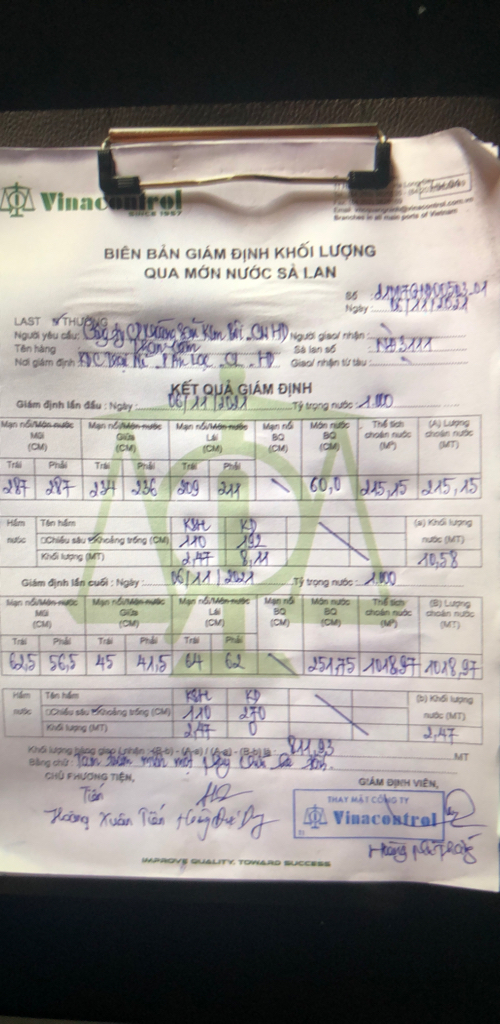 Vinacontrol
SINCE 1957
Branches in all main ports of Vietnam
BIÊN BẢN GIÁM ĐỊNH KHỐI LƯỢNG
QUA MỚN NƯỚC SÀ LAN
Số
Ngày: 06/11/2021
LAST THƯỜNG
Người yêu cầu: Người giao/ nhận:
Tên hàng Sà lan số NĐ3111
Nơi giám định: Giao/ nhận từ tàu:
KẾT QUẢ GIÁM ĐỊNH
Giám định lần đầu : Ngày: 06/11/2021 Tỷ trọng nước: 1.000
Mạn nổi/Mớn nước Mũi (CM) Mạn nổi/Mớn nước Giữa (CM) Mạn nổi/Mớn nước Lái (CM) Mạn nổi BQ (CM) Mớn nước BQ (CM) Thể tích choán nước (M³) (A) Lượng choán nước (MT)
Trái Phải Trái Phải Trái Phải
287 287 234 236 209 211 60,0 215,15 215,15
Hầm nước Tên hầm KSH KD (a) Khối lượng nước (MT)
Chiều sâu Khoảng trống (CM) 110 192
Khối lượng (MT) 2,47 8,11 10,58
Giám định lần cuối : Ngày: 06/11/2021 Tỷ trọng nước: 1.000
Mạn nổi/Mớn nước Mũi (CM) Mạn nổi/Mớn nước Giữa (CM) Mạn nổi/Mớn nước Lái (CM) Mạn nổi BQ (CM) Mớn nước BQ (CM) Thể tích choán nước (M³) (B) Lượng choán nước (MT)
Trái Phải Trái Phải Trái Phải
62,5 56,5 45 41,5 64 62 251,75 1018,97 1018,97
Hầm nước Tên hầm KSH KD (b) Khối lượng nước (MT)
Chiều sâu Khoảng trống (CM) 110 270
Khối lượng (MT) 2,47 0 2,47
Khối lượng hàng giao (nhận) (B-b) - (A-a) / (A-a) - (B-b) là : 811,93 MT
Bằng chữ: Tám trăm mười một phẩy chín ba tấn.
CHỦ PHƯƠNG TIỆN, GIÁM ĐỊNH VIÊN,
Tiến
THAY MẶT CÔNG TY
Vinacontrol
Hoàng Xuân Tiến
IMPROVE QUALITY, TOWARD SUCCESS